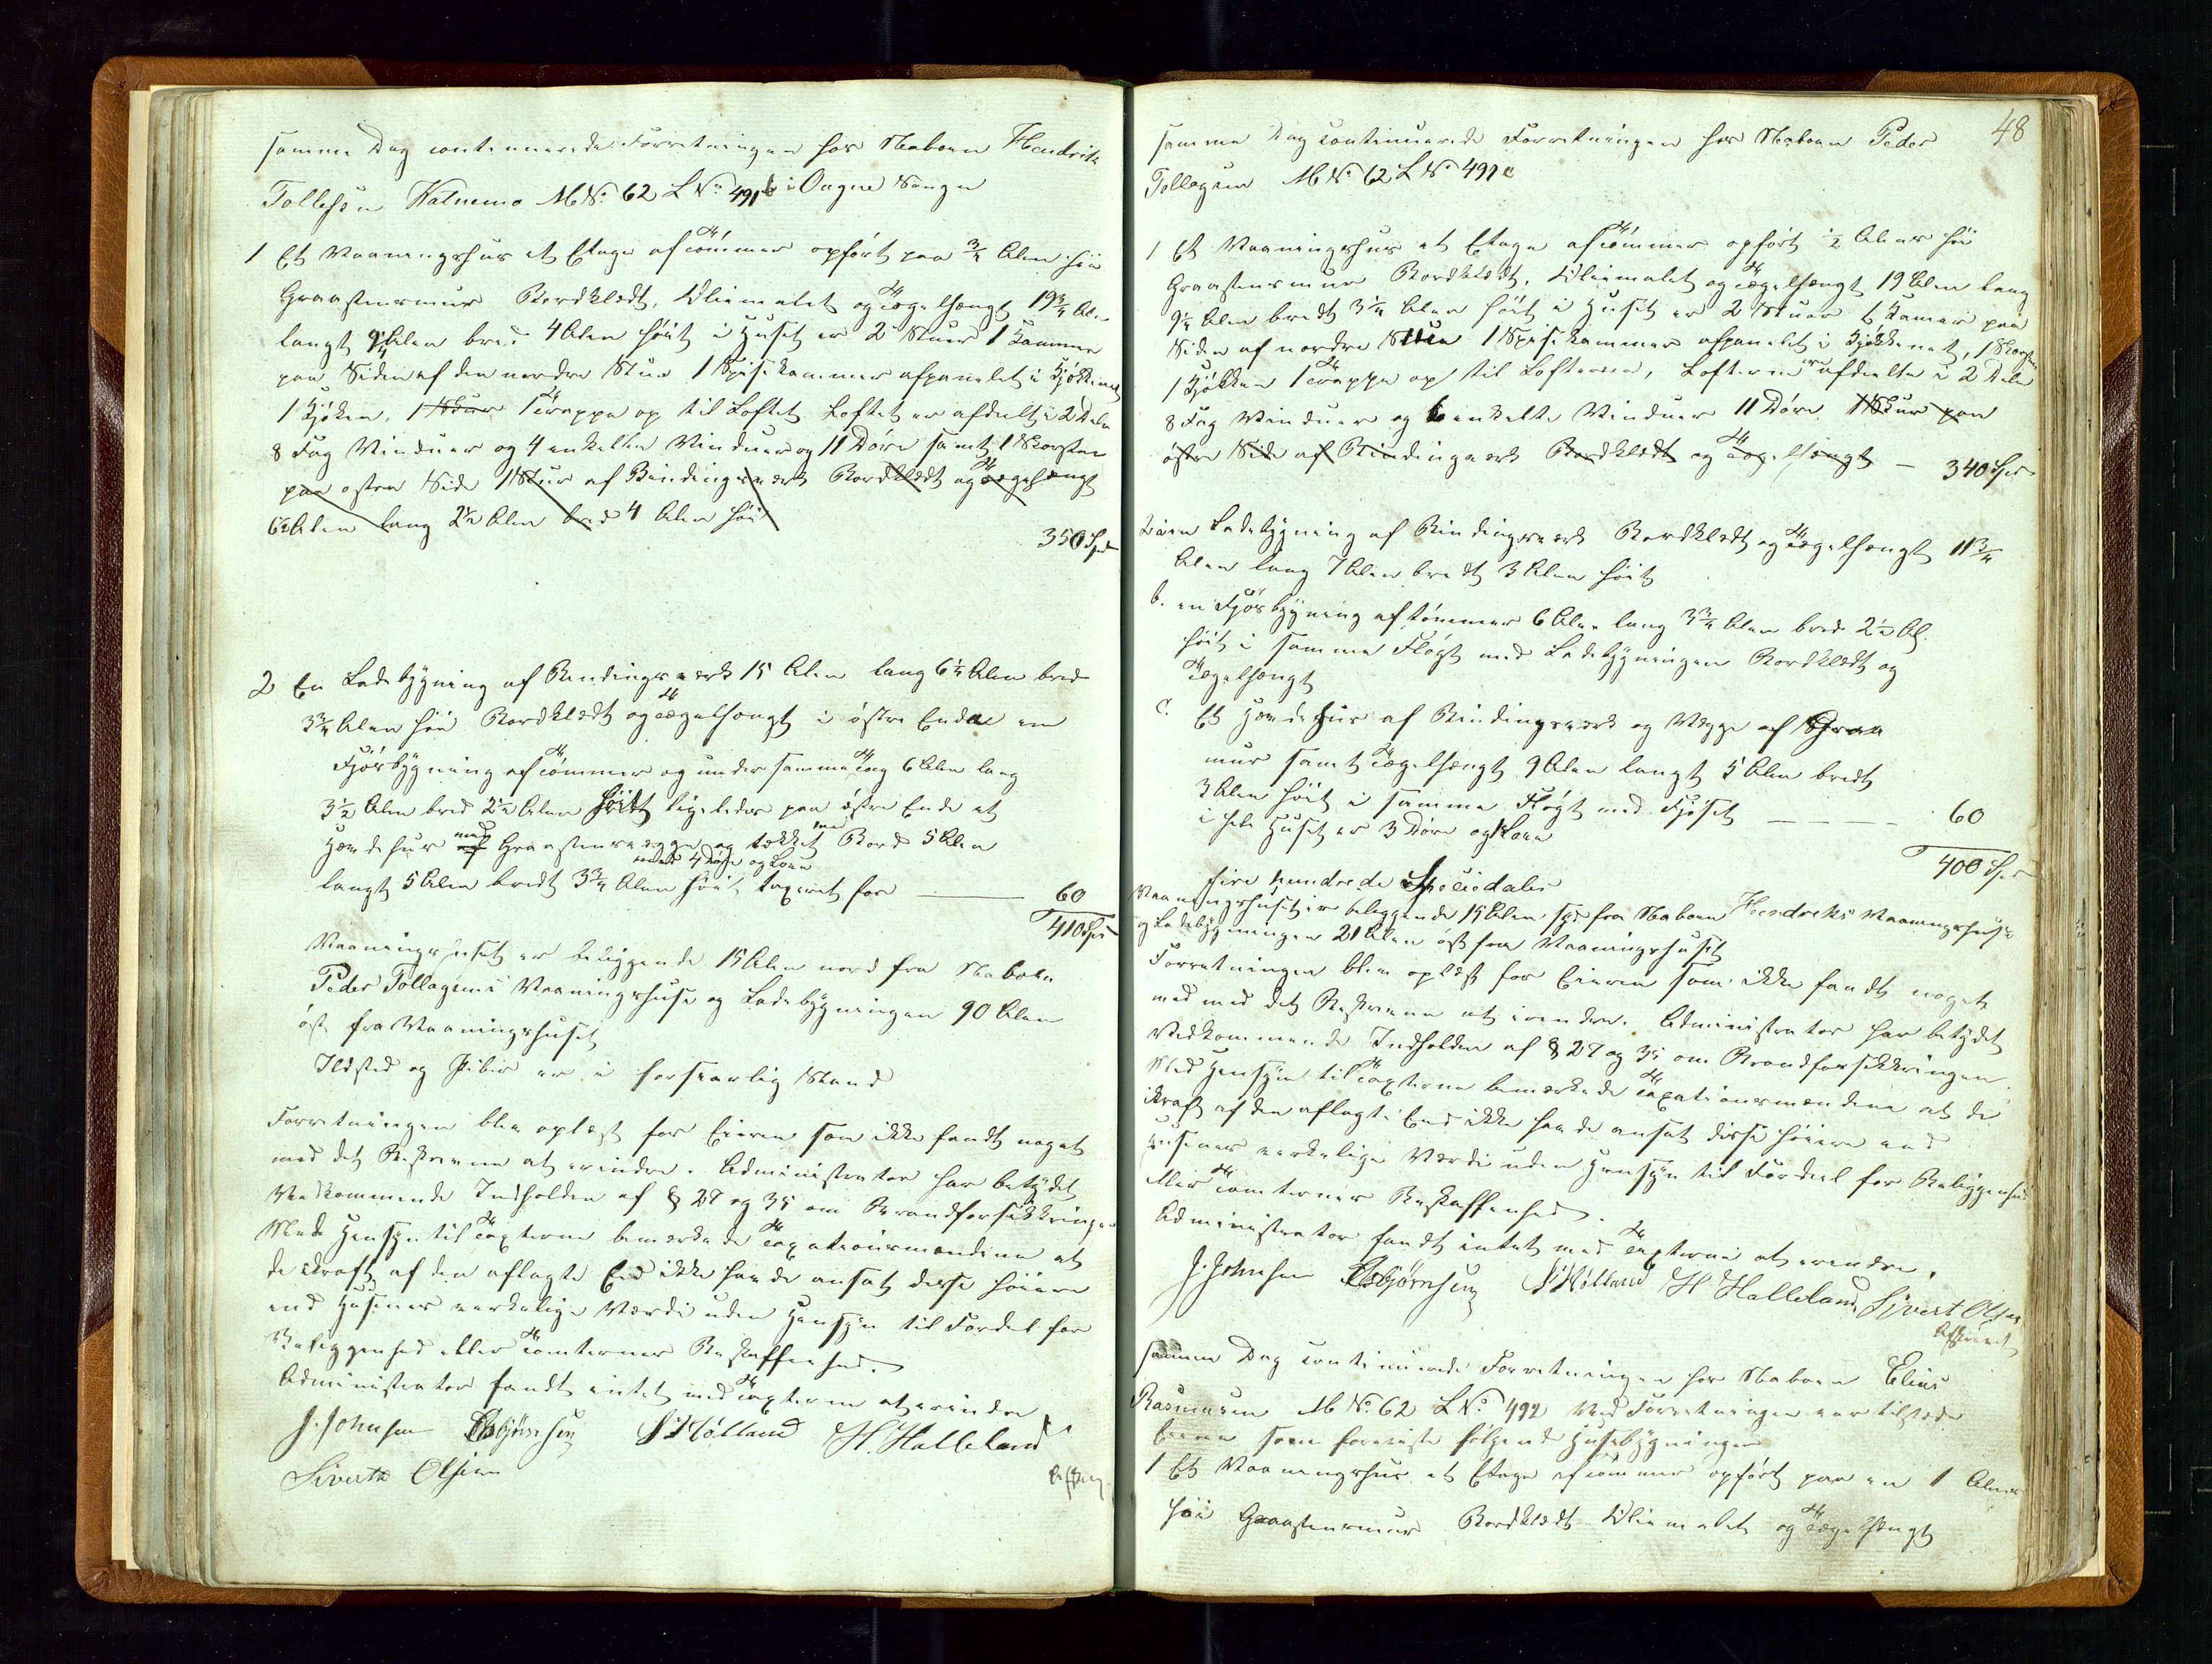 samme Dag continuerede Forretningen hos Naboen Hendrik
Tollefsen Kalnemo M No. 62 L No. 491 b i Ongne Songn
1 Et Vaaningshus et Etage af Tømmer opført paa 3/4 Alen høi
Graastensmur Bordklædt, Oliemalet og Tægelhængt 19 3/4 Alen
langt 9 1/4 Alen bred 4 Alen høit i Huset er 2 Stuer 1 Kammer
paa Siden af den nordre Stue 1 Spisekammer afpanelet i Kjøkkenet
1 Kjøken, 1 Skur 1 Trappe op til Loftet Loftet er afdelt i 2 Dele
8 Fag Vinduer og 4 enkelte Vinduer og 11 Døre samt 1 Skorsten
paa østen Side 1 Skur af Bindingsværk Bordklædt og Tægelhængt
6 1/2 Alen lang 2 1/2 Alen bred 4 Alen høi
350 Spd
2 En Ladebygning af Bindingsværk 15 Alen lang 6 1/4 Alen bred
3 3/4 Alen høi Bordklædt og Tægelhængt i østre Ende en
Fjøsbygning af Tømmer og under samme Tag 6 Alen lang
3 1/2 Alen bred 2 1/2 Alen høit ligeledes paa østre Ende et
Hændehus med Graastensvægge og tækket med Bord 5 Alen
langt 5 Alen bredt 3 3/4 Alen høit med 4 Døre og Loen taxeret for — 60
410 Spd
Vaaningshuset er beliggende 15 Alen nord fra Naboen
Peder Tollagsens Vaaningshuse og Ladebygningen 90 Alen
øst fra Vaaningshuset
Ildsted og Piber er i forsvarlig Stand
Forretningen blev oplæst for Eieren som ikke fandt noget
med det Beskrevne at erindre. Administrator har betydet
Vedkommende Indholden af § 27 og 35 om Brandforsikkringen
Med Hensyn til Taxterne bemærkede Taxationsmændene at
de ikraft af den aflagte Eed ikke havde ansat disse høiere
end Husenes verkelige Værdi uden Hensyn til Fordel for
Beliggenhed eller Tomternes Beskaffenhed.
Administrator fandt intet med Taxterne at erindre
J. Johnsen Esbjørnsen S Hølland H. Halleland
Siverth Olsen
Afskrev
48
samme Dag continuerede Forretningen hos Naboen Peder
Tollagsen M No. 62 L No. 491 c
1 Et Vaaningshus et Etage af Tømmer opført 1/2 Alens høi
Graastensmur Bordklædt, Oliemalet og Tægelhængt 19 Alen lang
9 1/4 Alen bredt 3 1/4 Alen høit i Huset er 2 Stuer 1 Kamer paa
Siden af nordre Stue 1 Spisekammer afpanelet i Kjøkkenet, 1 Skorsten
1 Kjøkken 1 Trappe op til Lofterne, Lofterne ere afdeelte i 2 Dele
8 Fag Vinduer og 6 enkelte Vinduer 11 Døre 1 Skur paa
østre Side af Bindingværk Bordklædt og Tægelhængt — 340 Spd
2 a en Ladebygning af Bindingsværk Bordklædt og Tægelhængt 11 3/4
Alen lang 7 Alen bredt 3 Alen høit
b. en Fjøsbygning af Tømmer 6 Alen lang 3 3/4 Alen bred 2 1/2 Al.
høit i samme Fløgt med Ladebygningen Bordklædt og
Tægelhængt
c. Et Hændehus af Bindingsværk og Vægge af Graa
mur samt Tægelhængt 9 Alen langt 5 Alen bredt
3 Alen høit i samme Fløgt med Fjøset — 60
i hele Huset er 3 Døre og Loen
400 Spd
fire hundrede Speciedaler
Vaaningshuset er beliggende 15 Alen syd fra Naboen Hendreks Vaaningshuse
og Ladebygningen 21 Alen øst fra Vaaningshuset
Forretningen blev oplæst for Eieren som ikke fandt noget
med det Beskrevne at erendre. Administrator har betydet
Vedkommende Indholden af § 27 og 35 om Brandforsikkringen.
Med Hensyn til Taxterne bemærkede Taxationsmændene at de
ikraft af den aflagte Eed ikke havde ansat disse høiere end
Husenes verkelige Værdi uden Hensyn til Fordeel for Beliggenhed
eller Tomternes Beskaffenhed.
Administrator fandt intet med Taxterne at erendre.
J. Johnsen Esbjørnsen S Hølland H Halleland Sivert Olsen
Afskrevet
samme Dag continuerede Forretningen hos Naboen Elias
Rasmusen M No. 62 L No. 492 Ved Forretningen var tilstede
Eieren som foreviste følgende Husebygninger
1 Et Vaaningshus et Etage af Tømmer opført paa en 1 Alens
høi Graastensmur Bordklædt Oliemalet og Tægelhængt